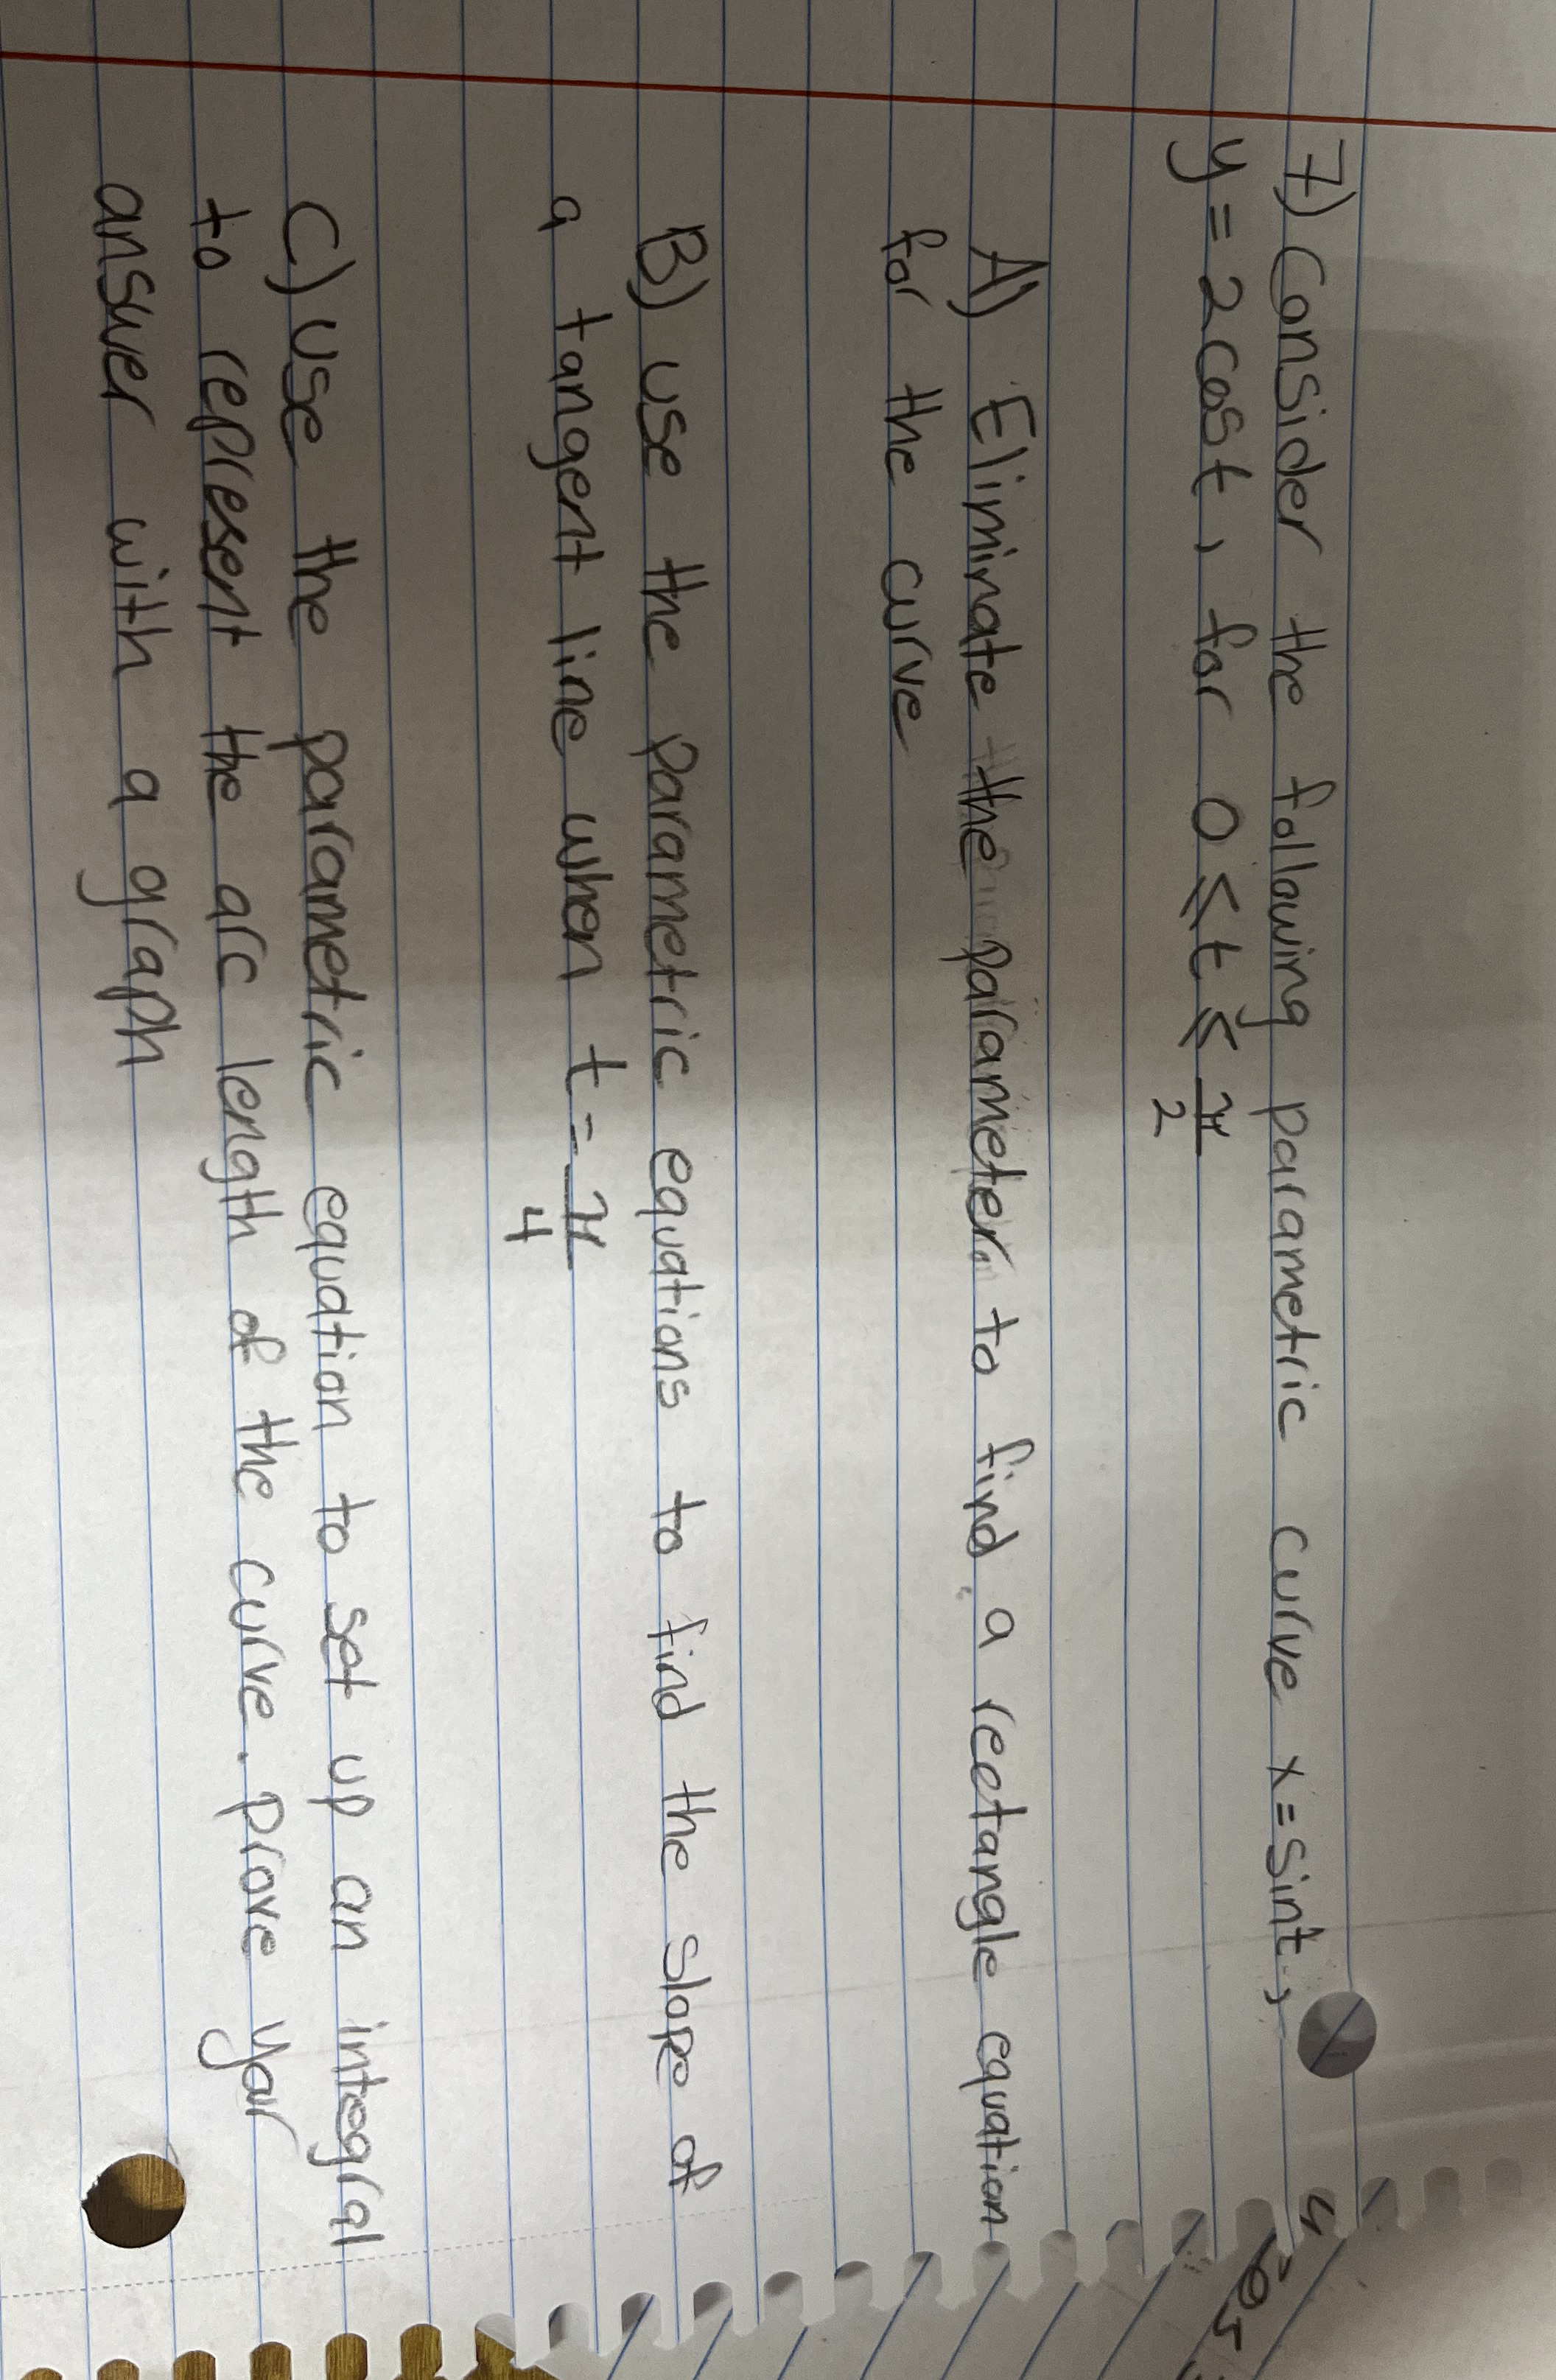 7) Consider the following parametric curve x=sint,
y = 2cost, for 0 ≤ t ≤ π/2
A) Eliminate the parameter to find a rectangle equation
for the curve
B) use the parametric equations to find the slope of
a tangent line when t = π/4
C) use the parametric equation to set up an integral
to represent the arc length of the curve. Prove your
answer with a graph